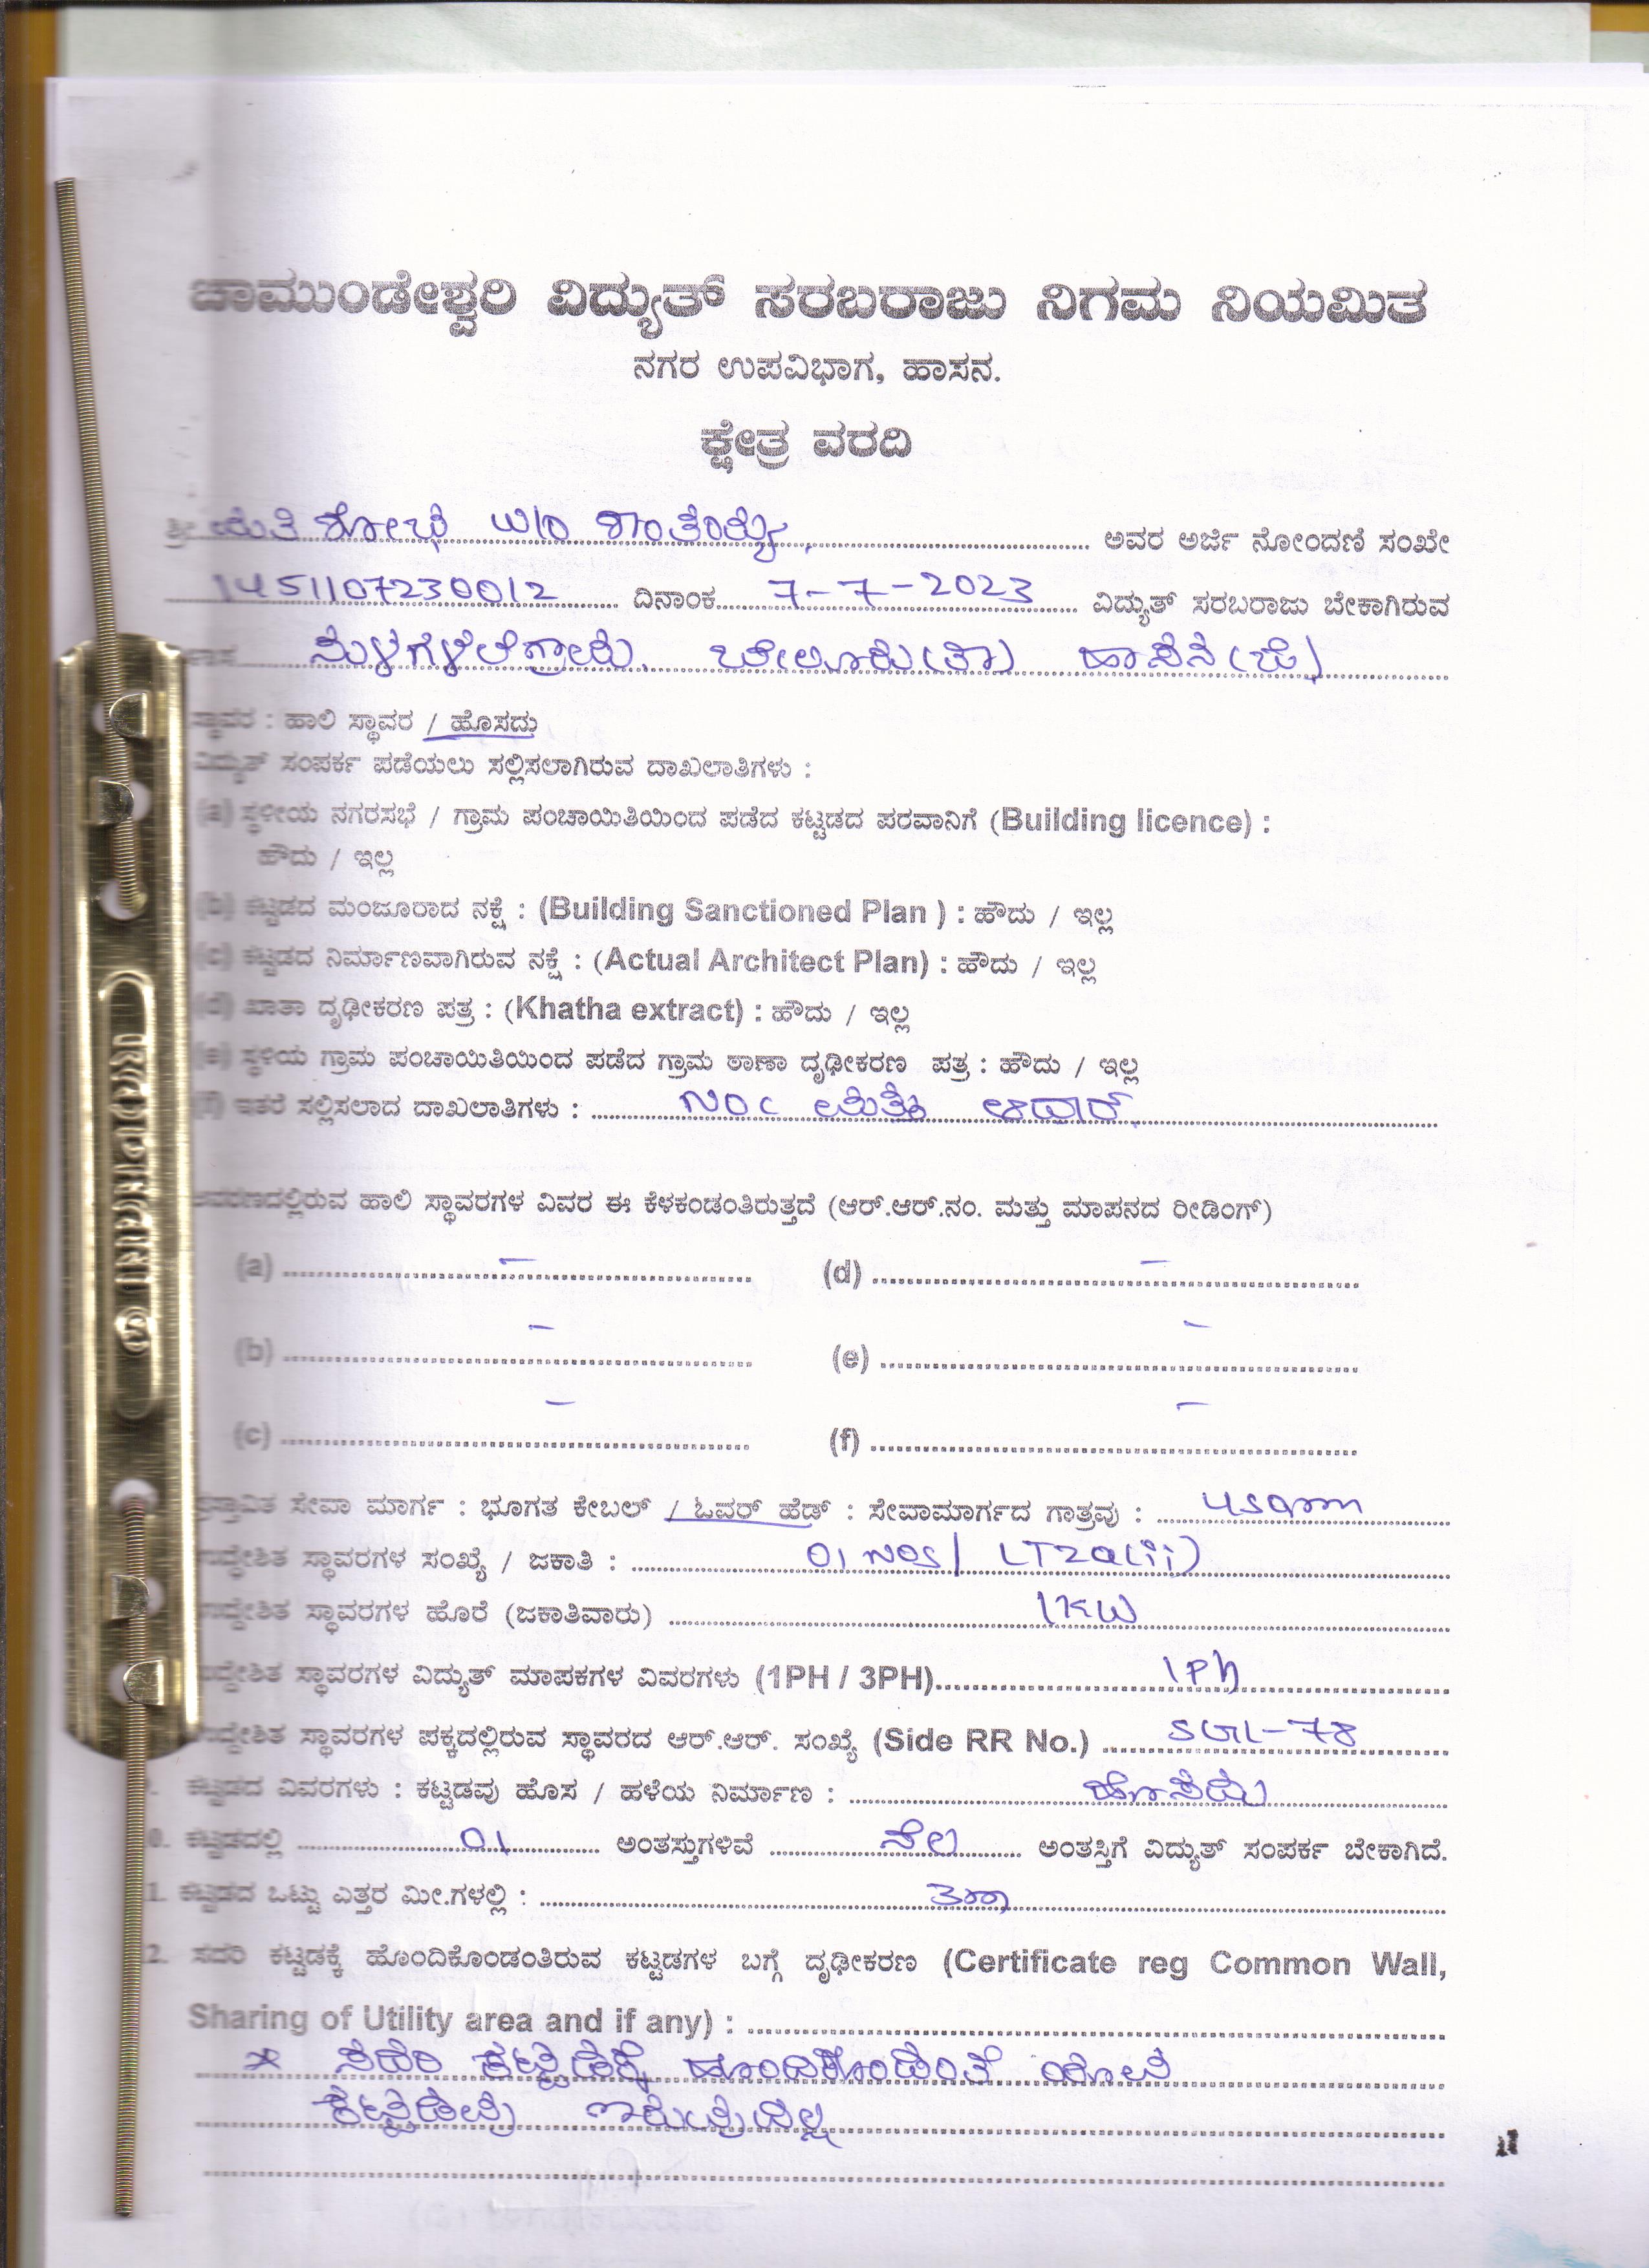 ಚಾಮುಂಡೇಶ್ವರಿ ವಿದ್ಯುತ್ ಸರಬರಾಜು ನಿಗಮ ನಿಯಮಿತ
ನಗರ ಉಪವಿಭಾಗ, ಹಾಸನ.
ಕ್ಷೇತ್ರ ವರದಿ
ಶ್ರೀ ಮತಿ ಶೋಭ W/O ಅವರ ಅರ್ಜಿ ನೋಂದಣಿ ಸಂಖೇ
1451107230012 ದಿನಾಂಕ 7-7-2023 ವಿದ್ಯುತ್ ಸರಬರಾಜು ಬೇಕಾಗಿರುವ
ಬೇಲೂರು (ತಾ) ಹಾಸನ (ಜಿ)
ಸ್ಥಾವರ : ಹಾಲಿ ಸ್ಥಾವರ / ಹೊಸದ್ದು
ವಿದ್ಯುತ್ ಸಂಪರ್ಕ ಪಡೆಯಲು ಸಲ್ಲಿಸಲಾಗಿರುವ ದಾಖಲಾತಿಗಳು :
(a) ಸ್ಥಳೀಯ ನಗರಸಭೆ / ಗ್ರಾಮ ಪಂಚಾಯಿತಿಯಿಂದ ಪಡೆದ ಕಟ್ಟಡದ ಪರವಾನಿಗೆ (Building licence) :
ಹೌದು / ಇಲ್ಲ
(b) ಕಟ್ಟಡದ ಮಂಜೂರಾದ ನಕ್ಷೆ : (Building Sanctioned Plan ) : ಹೌದು / ಇಲ್ಲ
(c) ಕಟ್ಟಡದ ನಿರ್ಮಾಣವಾಗಿರುವ ನಕ್ಷೆ : (Actual Architect Plan) : ಹೌದು / ಇಲ್ಲ
(d) ಖಾತಾ ದೃಢೀಕರಣ ಪತ್ರ : (Khatha extract) : ಹೌದು / ಇಲ್ಲ
(e) ಸ್ಥಳಿಯ ಗ್ರಾಮ ಪಂಚಾಯಿತಿಯಿಂದ ಪಡೆದ ಗ್ರಾಮ ಠಾಣಾ ದೃಢೀಕರಣ ಪತ್ರ : ಹೌದು / ಇಲ್ಲ
(f) ಇತರೆ ಸಲ್ಲಿಸಲಾದ ದಾಖಲಾತಿಗಳು : NOC ಮತ್ತು ಆಧಾರ್
ಆವರಣದಲ್ಲಿರುವ ಹಾಲಿ ಸ್ಥಾವರಗಳ ವಿವರ ಈ ಕೆಳಕಂಡಂತಿರುತ್ತದೆ (ಆರ್.ಆರ್.ನಂ. ಮತ್ತು ಮಾಪನದ ರೀಡಿಂಗ್)
(a) – (d) –
(b) – (e) –
(c) – (f) –
ಪ್ರಸ್ತಾವಿತ ಸೇವಾ ಮಾರ್ಗ : ಭೂಗತ ಕೇಬಲ್ / ಓವರ್ ಹೆಡ್ : ಸೇವಾಮಾರ್ಗದ ಗಾತ್ರವು : 4sqmm
ಉದ್ದೇಶಿತ ಸ್ಥಾವರಗಳ ಸಂಖ್ಯೆ / ಜಕಾತಿ : 01 Nos / LT2a(ii)
ಉದ್ದೇಶಿತ ಸ್ಥಾವರಗಳ ಹೊರೆ (ಜಕಾತಿವಾರು) 1KW
ಉದ್ದೇಶಿತ ಸ್ಥಾವರಗಳ ವಿದ್ಯುತ್ ಮಾಪಕಗಳ ವಿವರಗಳು (1PH / 3PH) 1Ph
ಉದ್ದೇಶಿತ ಸ್ಥಾವರಗಳ ಪಕ್ಕದಲ್ಲಿರುವ ಸ್ಥಾವರದ ಆರ್.ಆರ್. ಸಂಖ್ಯೆ (Side RR No.) SGL-78
ಕಟ್ಟಡದ ವಿವರಗಳು : ಕಟ್ಟಡವು ಹೊಸ / ಹಳೆಯ ನಿರ್ಮಾಣ : ಹೊಸದು
0. ಕಟ್ಟಡದಲ್ಲಿ 01 ಅಂತಸ್ತುಗಳಿವೆ ನೆಲ ಅಂತಸ್ತಿಗೆ ವಿದ್ಯುತ್ ಸಂಪರ್ಕ ಬೇಕಾಗಿದೆ.
1. ಕಟ್ಟಡದ ಒಟ್ಟು ಎತ್ತರ ಮೀ.ಗಳಲ್ಲಿ : 3m
2. ಸದರಿ ಕಟ್ಟಡಕ್ಕೆ ಹೊಂದಿಕೊಂಡಂತಿರುವ ಕಟ್ಟಡಗಳ ಬಗ್ಗೆ ದೃಢೀಕರಣ (Certificate reg Common Wall,
Sharing of Utility area and if any) :
* ಸದರಿ ಕಟ್ಟಡಕ್ಕೆ ಹೊಂದಿಕೊಂಡಂತೆ ಯಾವ
ಕಟ್ಟಡವು ಇರುವುದಿಲ್ಲ